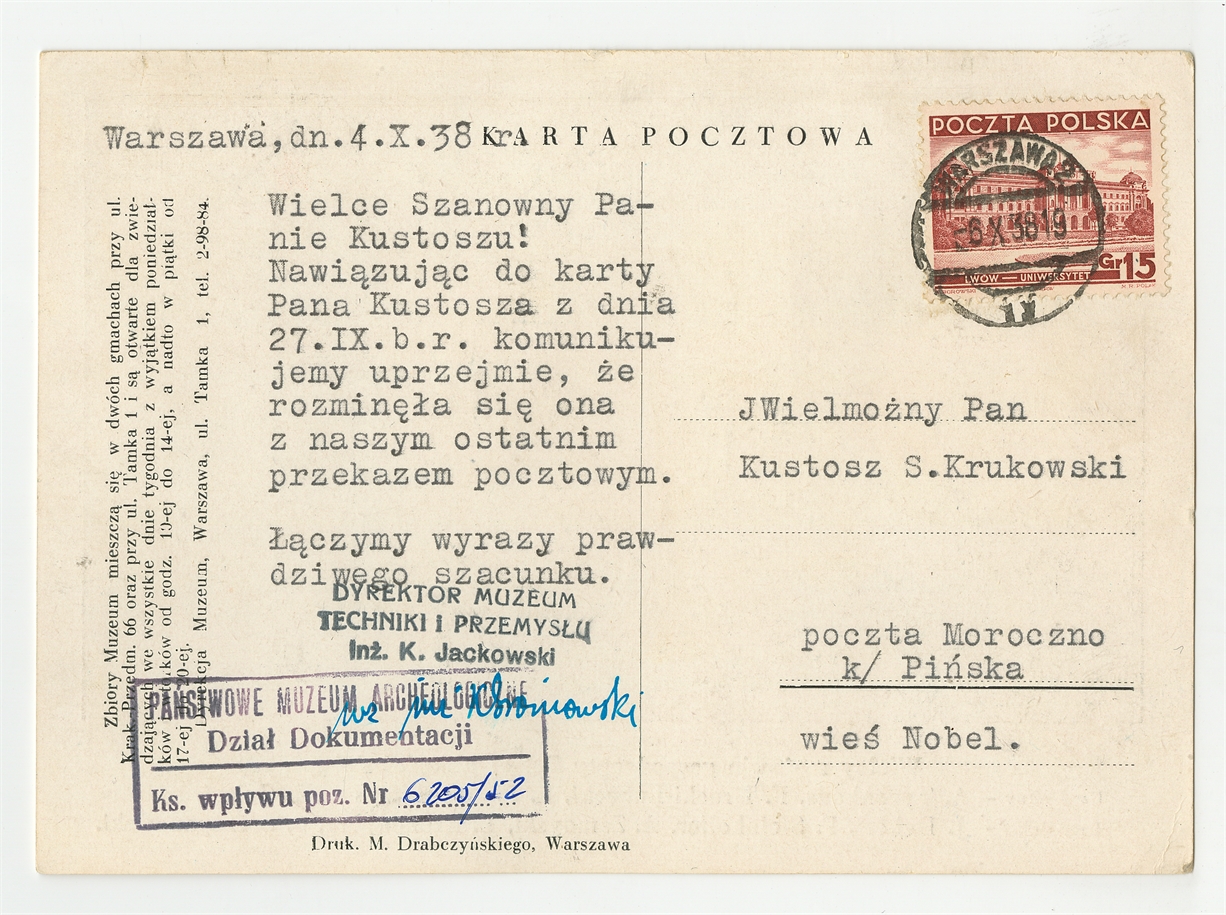 Warszawa,dn.4.X.38 r.
KARTA POCZTOWA
POCZTA POLSKA
WARSZAWA 2
-6 X 38 19
Gr 15
LWÓW — UNIWERSYTET
Zbiory Muzeum mieszczą się w dwóch gmachach przy ul.
Krak. Przedm. 66 oraz przy ul. Tamka 1 i są otwarte dla zwie-
dzających we wszystkie dnie tygodnia z wyjątkiem poniedział-
ków i wtorków od godz. 10-ej do 14-ej, a nadto w piątki od
17-ej do 20-ej.
Dyrekcja Muzeum, Warszawa, ul. Tamka 1, tel. 2-98-84.
Wielce Szanowny Pa-
nie Kustoszu!
Nawiązując do karty
Pana Kustosza z dnia
27.IX.b.r. komuniku-
jemy uprzejmie, że
rozminęła się ona
z naszym ostatnim
przekazem pocztowym.
Łączymy wyrazy praw-
dziwego szacunku.
DYREKTOR MUZEUM
TECHNIKI I PRZEMYSŁU
Inż. K. Jackowski
wz inż
PAŃSTWOWE MUZEUM ARCHEOLOGICZNE
Dział Dokumentacji
Ks. wpływu poz. Nr 6205/52
JWielmożny Pan
Kustosz S.Krukowski
poczta Moroczno
k/ Pińska
wieś Nobel.
Druk. M. Drabczyńskiego, Warszawa